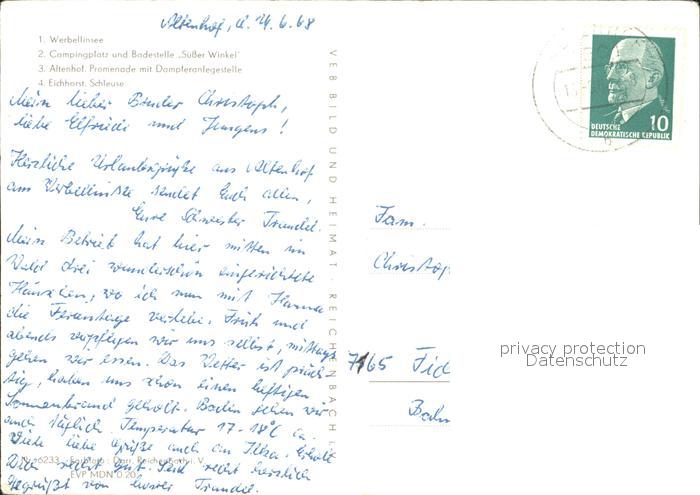 Altenhof, d. 24.6.68
1. Werbellinsee
2. Campingplatz und Badestelle „Süßer Winkel"
3. Altenhof. Promenade mit Dampferanlegestelle
4. Eichhorst. Schleuse
Mein lieber Bruder Christoph,
liebe Elfriede und Jungens!
Herzliche Urlaubsgrüße aus Altenhof
am Werbellinsee sendet Euch allen,
Eure Schwester Traudel.
Mein Betrieb hat hier mitten im
Wald drei wunderschön eingerichtete
Häuschen, wo ich nun mit Hanna
die Ferientage verlebe. Früh und
abends verpflegen wir uns selbst, mittags
gehen wir essen. Das Wetter ist präch-
tig, haben uns schon einen heftigen
Sonnenbrand geholt. Baden gehen wir
auch täglich. Temperatur 17-18°C ca.
Viele liebe Grüße auch an Ilka. Erholt
Euch recht gut. Seid recht herzlich
gegrüßt von Eurer Traudel.
6233 Reichenbach i. V.
EVP MDN 0.20
VEB BILD UND HEIMAT · REICHENBACH I.
DEUTSCHE
DEMOKRATISCHE REPUBLIK
10
Fam.
Christop
7165 Fid
Bahn
privacy protection
Datenschutz